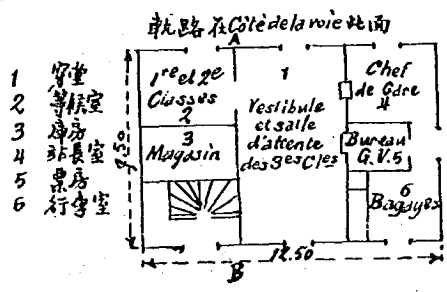 軌路在Côté de la voie北面
A
1 穿堂
2 等候室
3 庫房
4 站長室
5 票房
6 行李室
1re et 2e
Classes
2
3
Magasin
1
Vestibule
et salle
d'attente
des 3es Cles
Chef
de Gare
4
Bureau
G.V. 5
6
Bagages
9.50
12.50
B